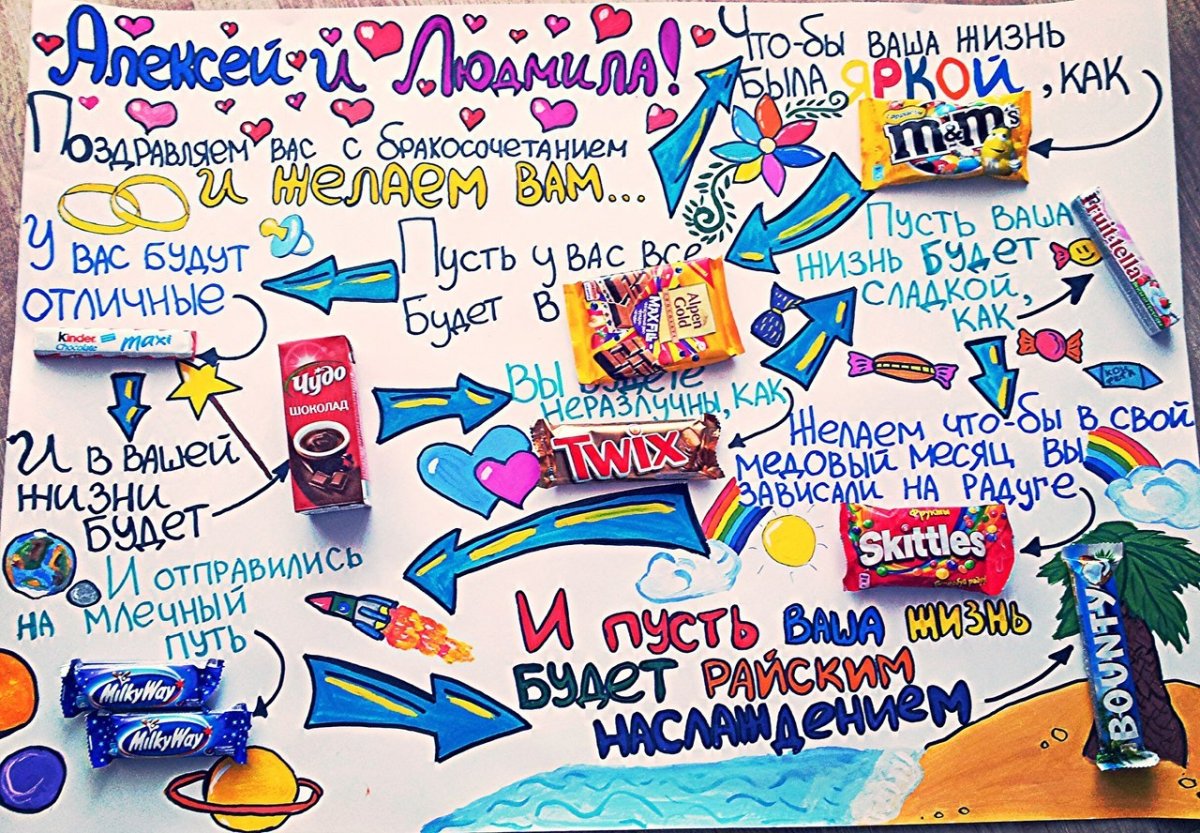 Алексей и Людмила!
Поздравляем вас с бракосочетанием
и желаем вам...
Что-бы ваша жизнь
была яркой, как
m&m's
Пусть у вас все
будет в
Alpen Gold
MAXFUN
У вас будут
отличные
Kinder
Chocolate maxi
И в вашей
жизни
будет
Чудо
шоколад
Вы будете
неразлучны, как
TWIX
Пусть ваша
жизнь будет
сладкой,
как
Fruittella
Желаем что-бы в свой
медовый месяц вы
зависали на радуге
Фрукты
Skittles
И отправились
на млечный
путь
MilkyWay
MilkyWay
И пусть ваша жизнь
будет райским
наслаждением
BOUNTY